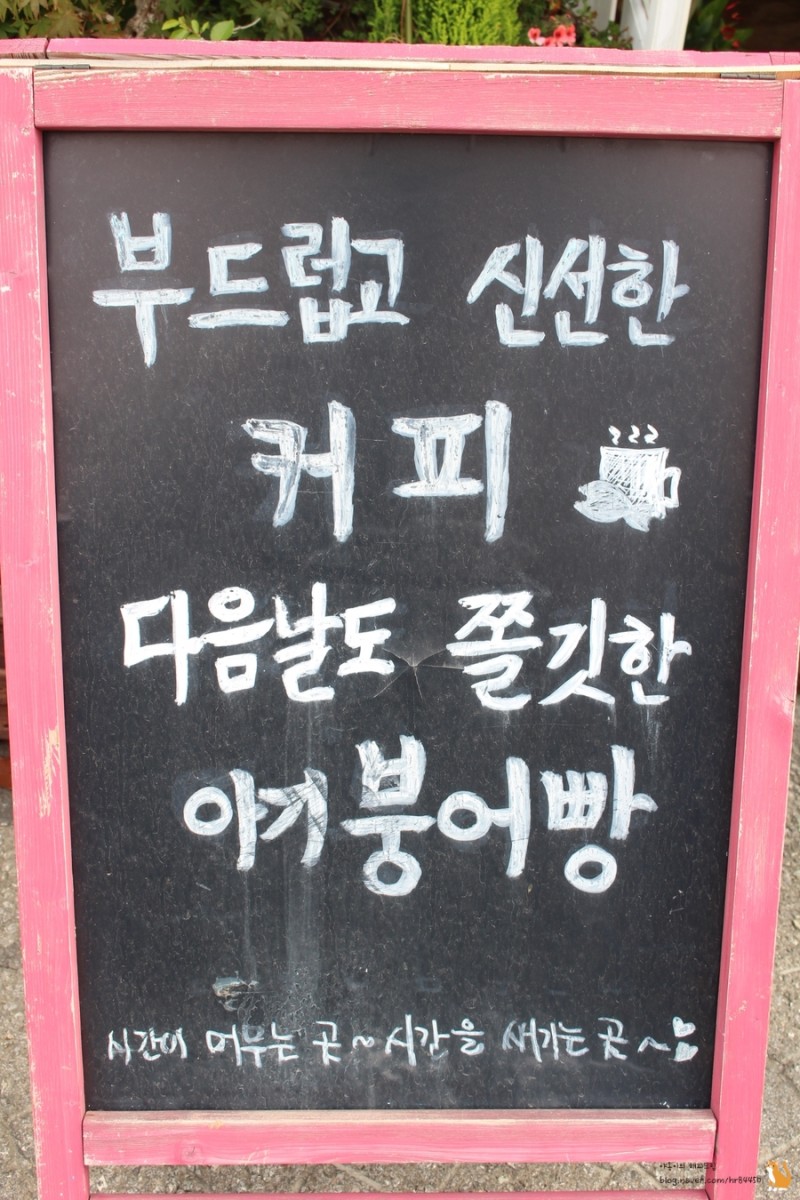 부드럽고 신선한
커피
다음날도 쫄깃한
아기붕어빵
시간이 머무는 곳~ 시간을 새기는 곳~
blog.naver.com/hr84450